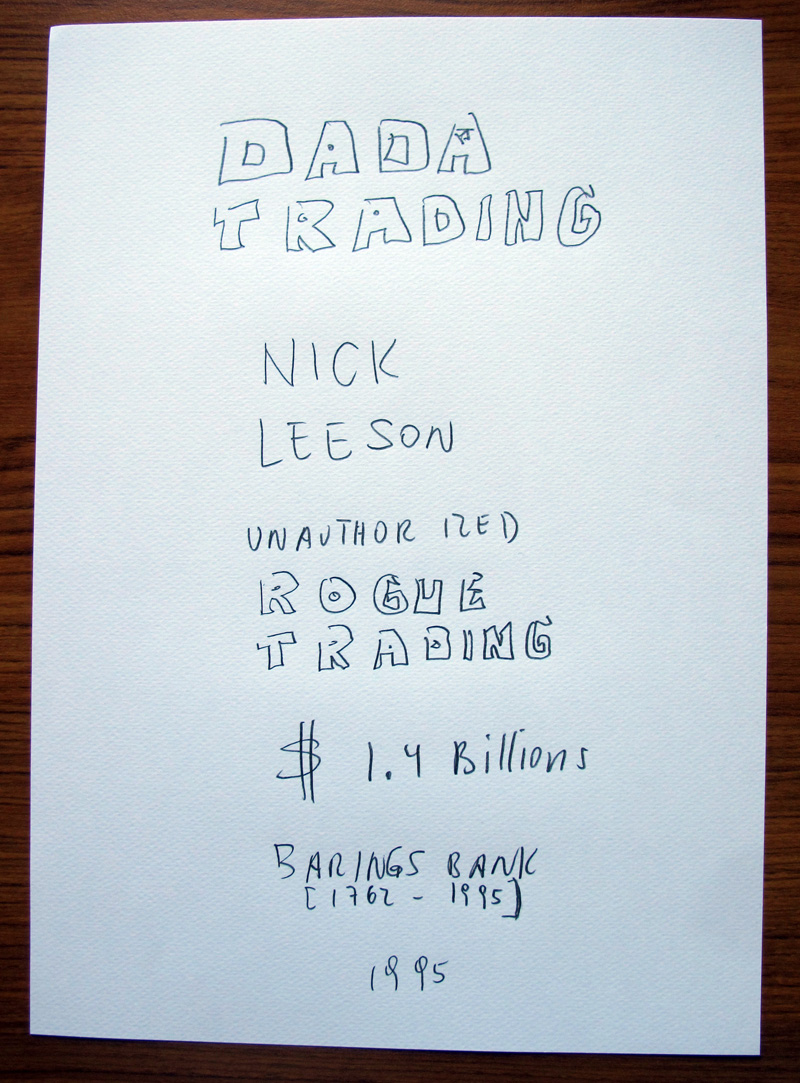 DADA
TRADING
NICK
LEESON
UNAUTHORIZED
ROGUE
TRADING
$ 1.4 Billions
BARINGS BANK
[1762 - 1995]
1995